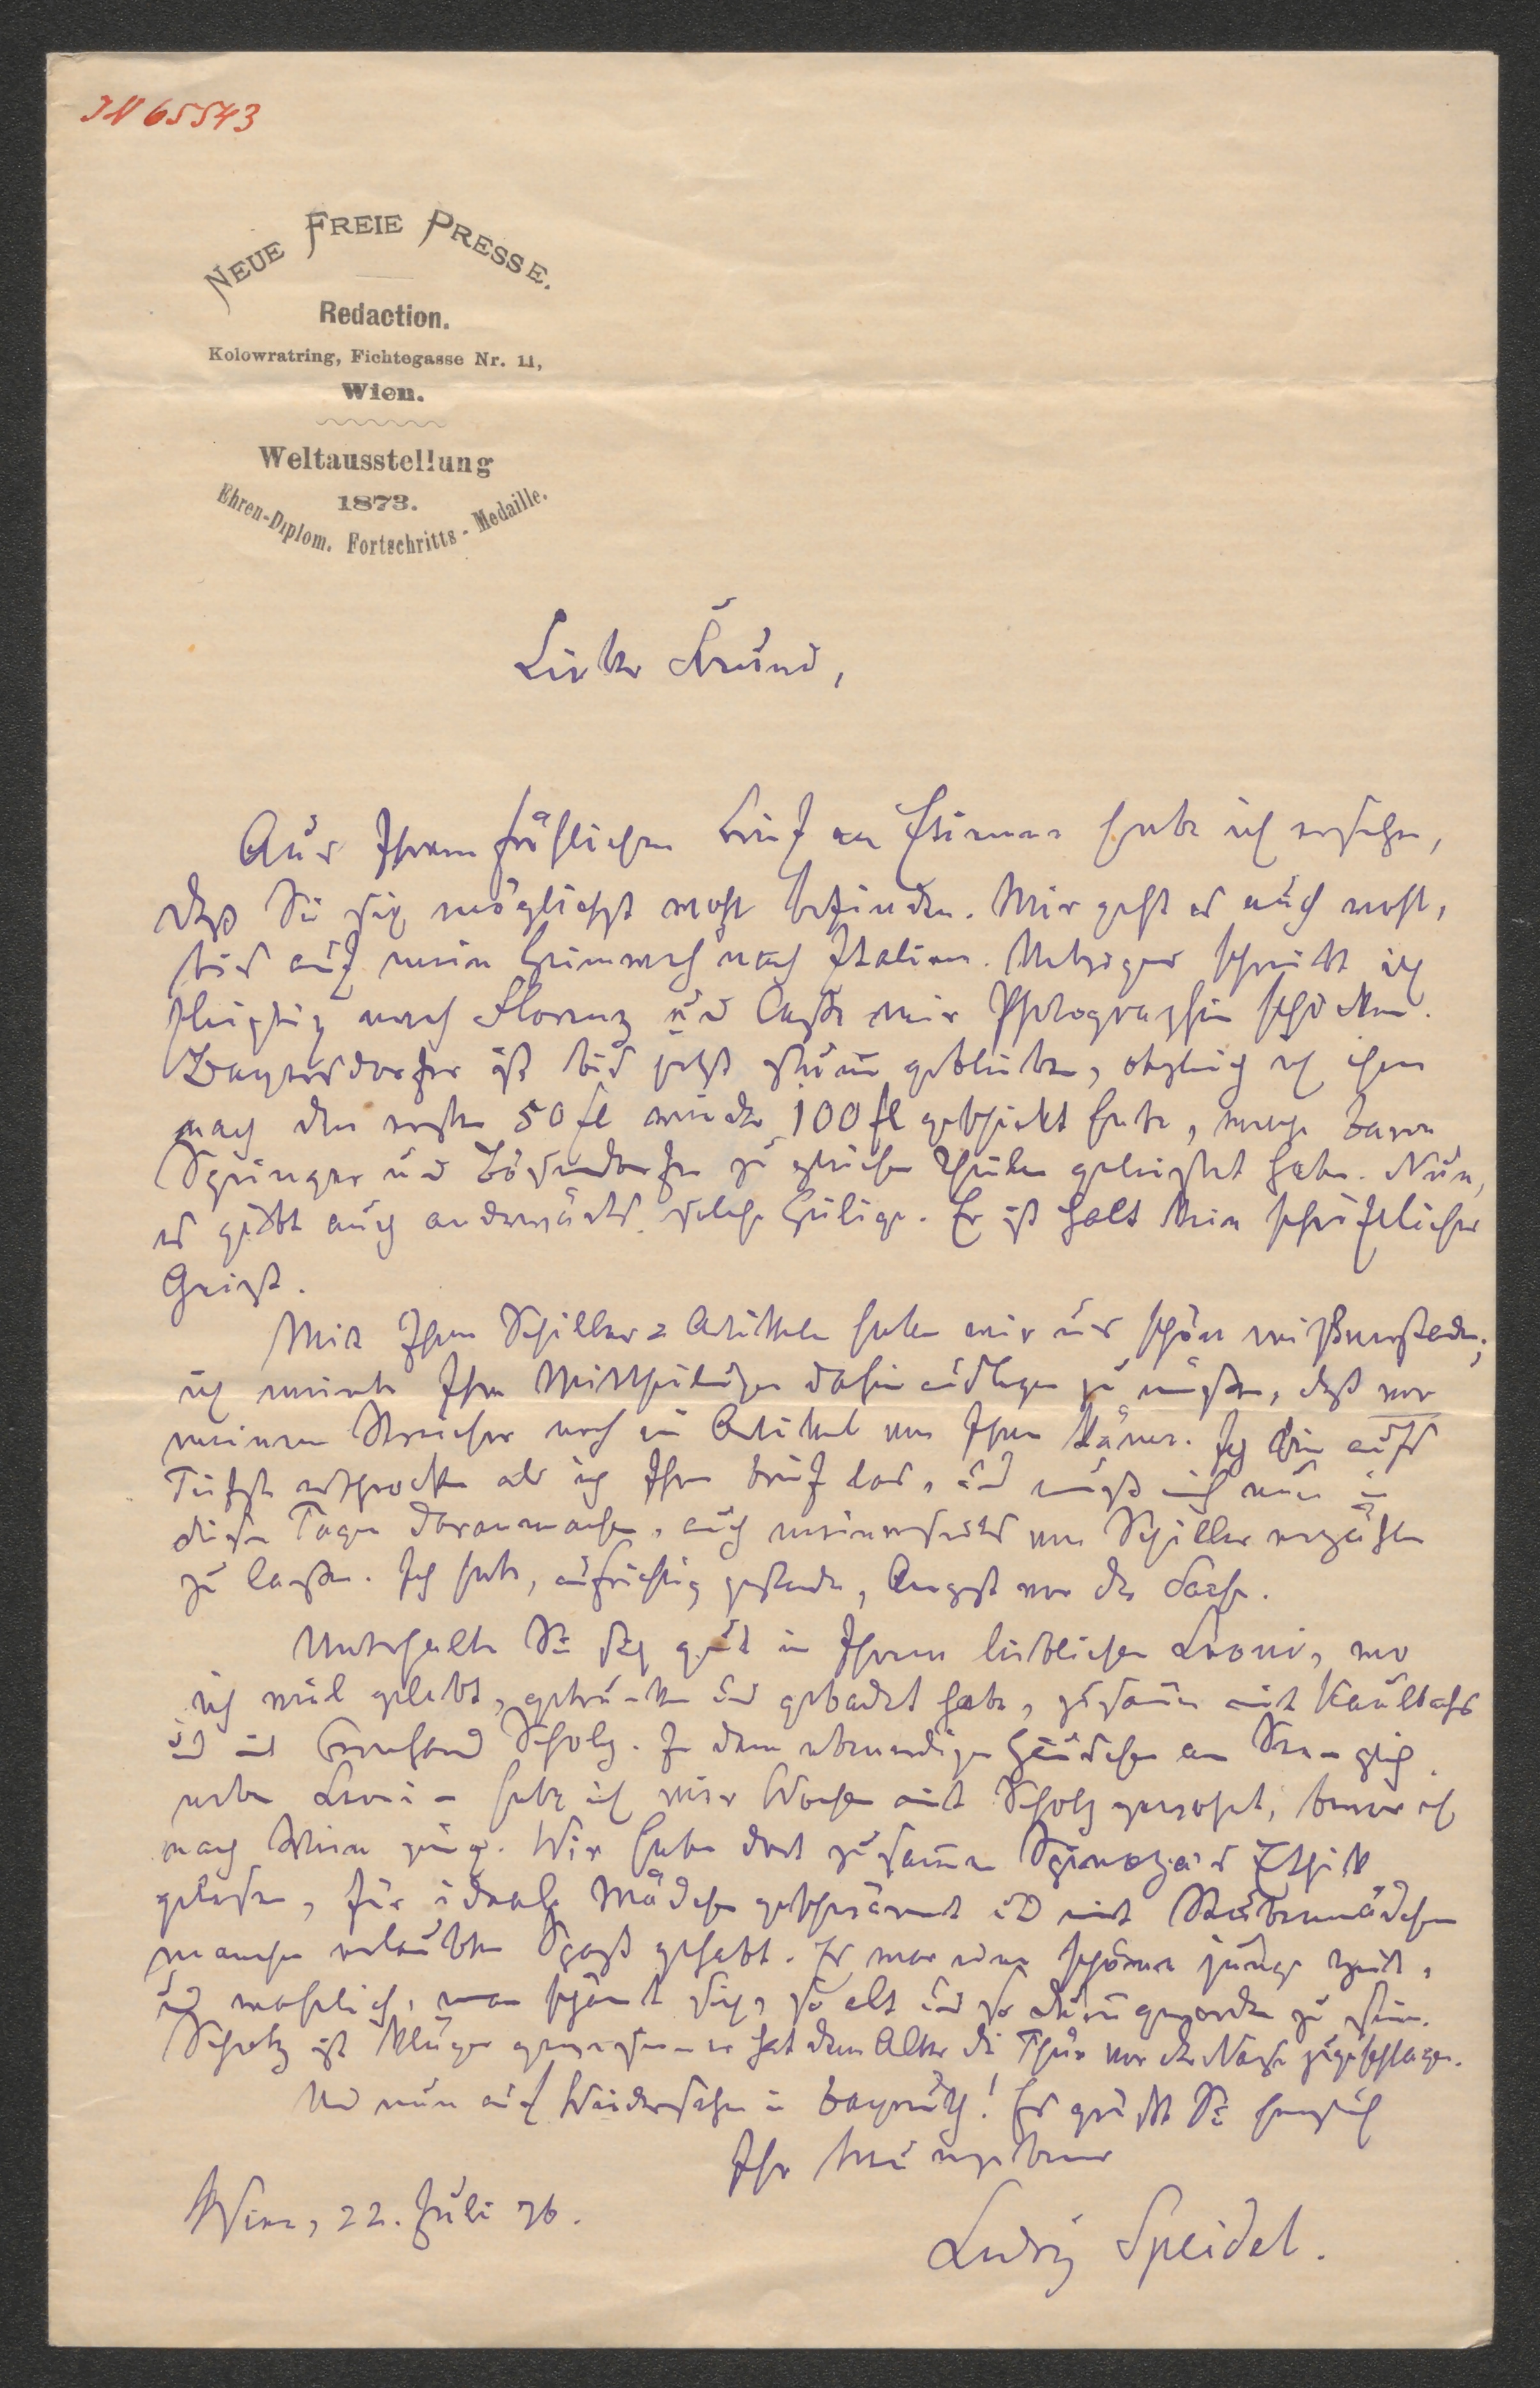 IN 65543
NEUE FREIE PRESSE.
Redaction.
Kolowratring, Fichtegasse Nr. 11,
Wien.
Weltausstellung
1873.
Ehren-Diplom. Fortschritts-Medaille.
Lieber Freund,
Aus Ihrem fröhlichen Brief an Etienne habe ich ersehen,
daß Sie sich möglichst wohl befinden. Mir geht es auch wohl,
bis auf mein Heimweh nach Italien. Uebrigens schreibe ich
fleißig nach Florenz und lasse mir Photographien schicken.
Bayersdorfer ist bis jetzt stumm geblieben, obgleich ich ihm
nach den ersten 50 fl wieder 100 fl geschickt habe, welche Baron
Springer und Bösendorfer zu gleichen Theilen geleistet haben. Nun,
es gibt auch anderwärts solche Heilige. Er ist halt kein schriftlicher
Geist.
Mit Ihren Schiller-Artikeln haben wir uns schön mißverstanden;
ich meinte Ihre Mittheilungen dahin auslegen zu müssen, daß vor
meinem Streicher noch ein Artikel von Ihnen käme. Ich bin aufs
Tiefste erschrocken als ich Ihren Brief las, und muß mich nun in
diesen Tagen daranmachen, auch meinerseits von Schiller erzählen
zu lassen. Ich habe, aufrichtig gestanden, Angst vor der Sache.
Unterhalten Sie sich gut in Ihrem lieblichen Leoni, wo
ich viel gelebt, getrunken und gebadet habe, zusammen mit Kaulbachs
und mit Bernhard Scholz. In dem Häuschen am See - gleich
neben Leoni - habe ich vier Wochen mit Scholz gewohnt, bevor ich
nach Wien ging. Wir haben dort zusammen Spinoza's Ethik
gelesen, für ideale Mädchen geschwärmt und mit Stubenmädchen
manchen erlaubten Spaß gehabt. Es war eine schöne junge Zeit,
und wahrlich, man schämt sich, so alt und so dumm geworden zu sein.
Scholz ist klüger gewesen - er hat dem Alter die Thür vor der Nase zugeschlagen.
Und nun auf Wiedersehen in Bayreuth! Es grüßt Sie herzlich
Ihr treu ergebener
Wien, 22. Juli 76.
Ludwig Speidel.